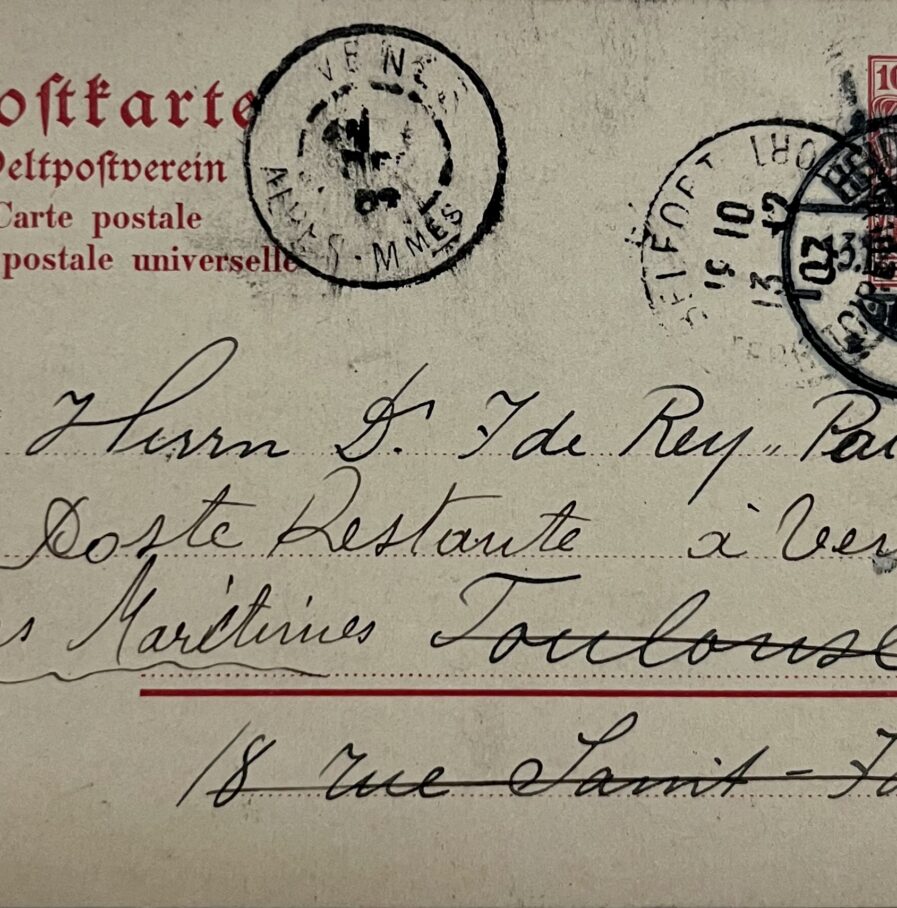 ostkarte
eltpostverein
Carte postale
postale universelle
VENCE
ALPES-MMES
BELFORT
19 10
13 12
10
Herrn Dr. J de Rey-Pai
Poste Restante à Ven
s Marétimes Toulouse
18 rue Saint-J